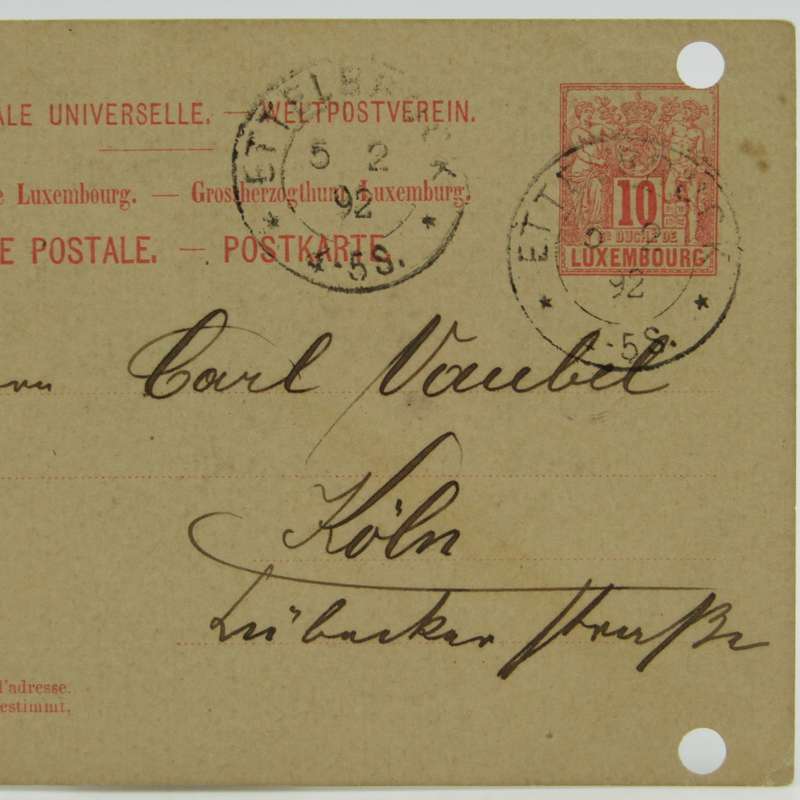 ALE UNIVERSELLE. — WELTPOSTVEREIN.
e Luxembourg. — Grossherzogthum Luxemburg.
E POSTALE. — POSTKARTE.
ETTELBRUCK
5 2
92
4-5S.
10
GD DUCHÉ DE
LUXEMBOURG
ETTELBRUCK
5 2
92
4-5S.
rn Carl Vaubel
Köln
Lübecker straße
l'adresse.
estimmt.